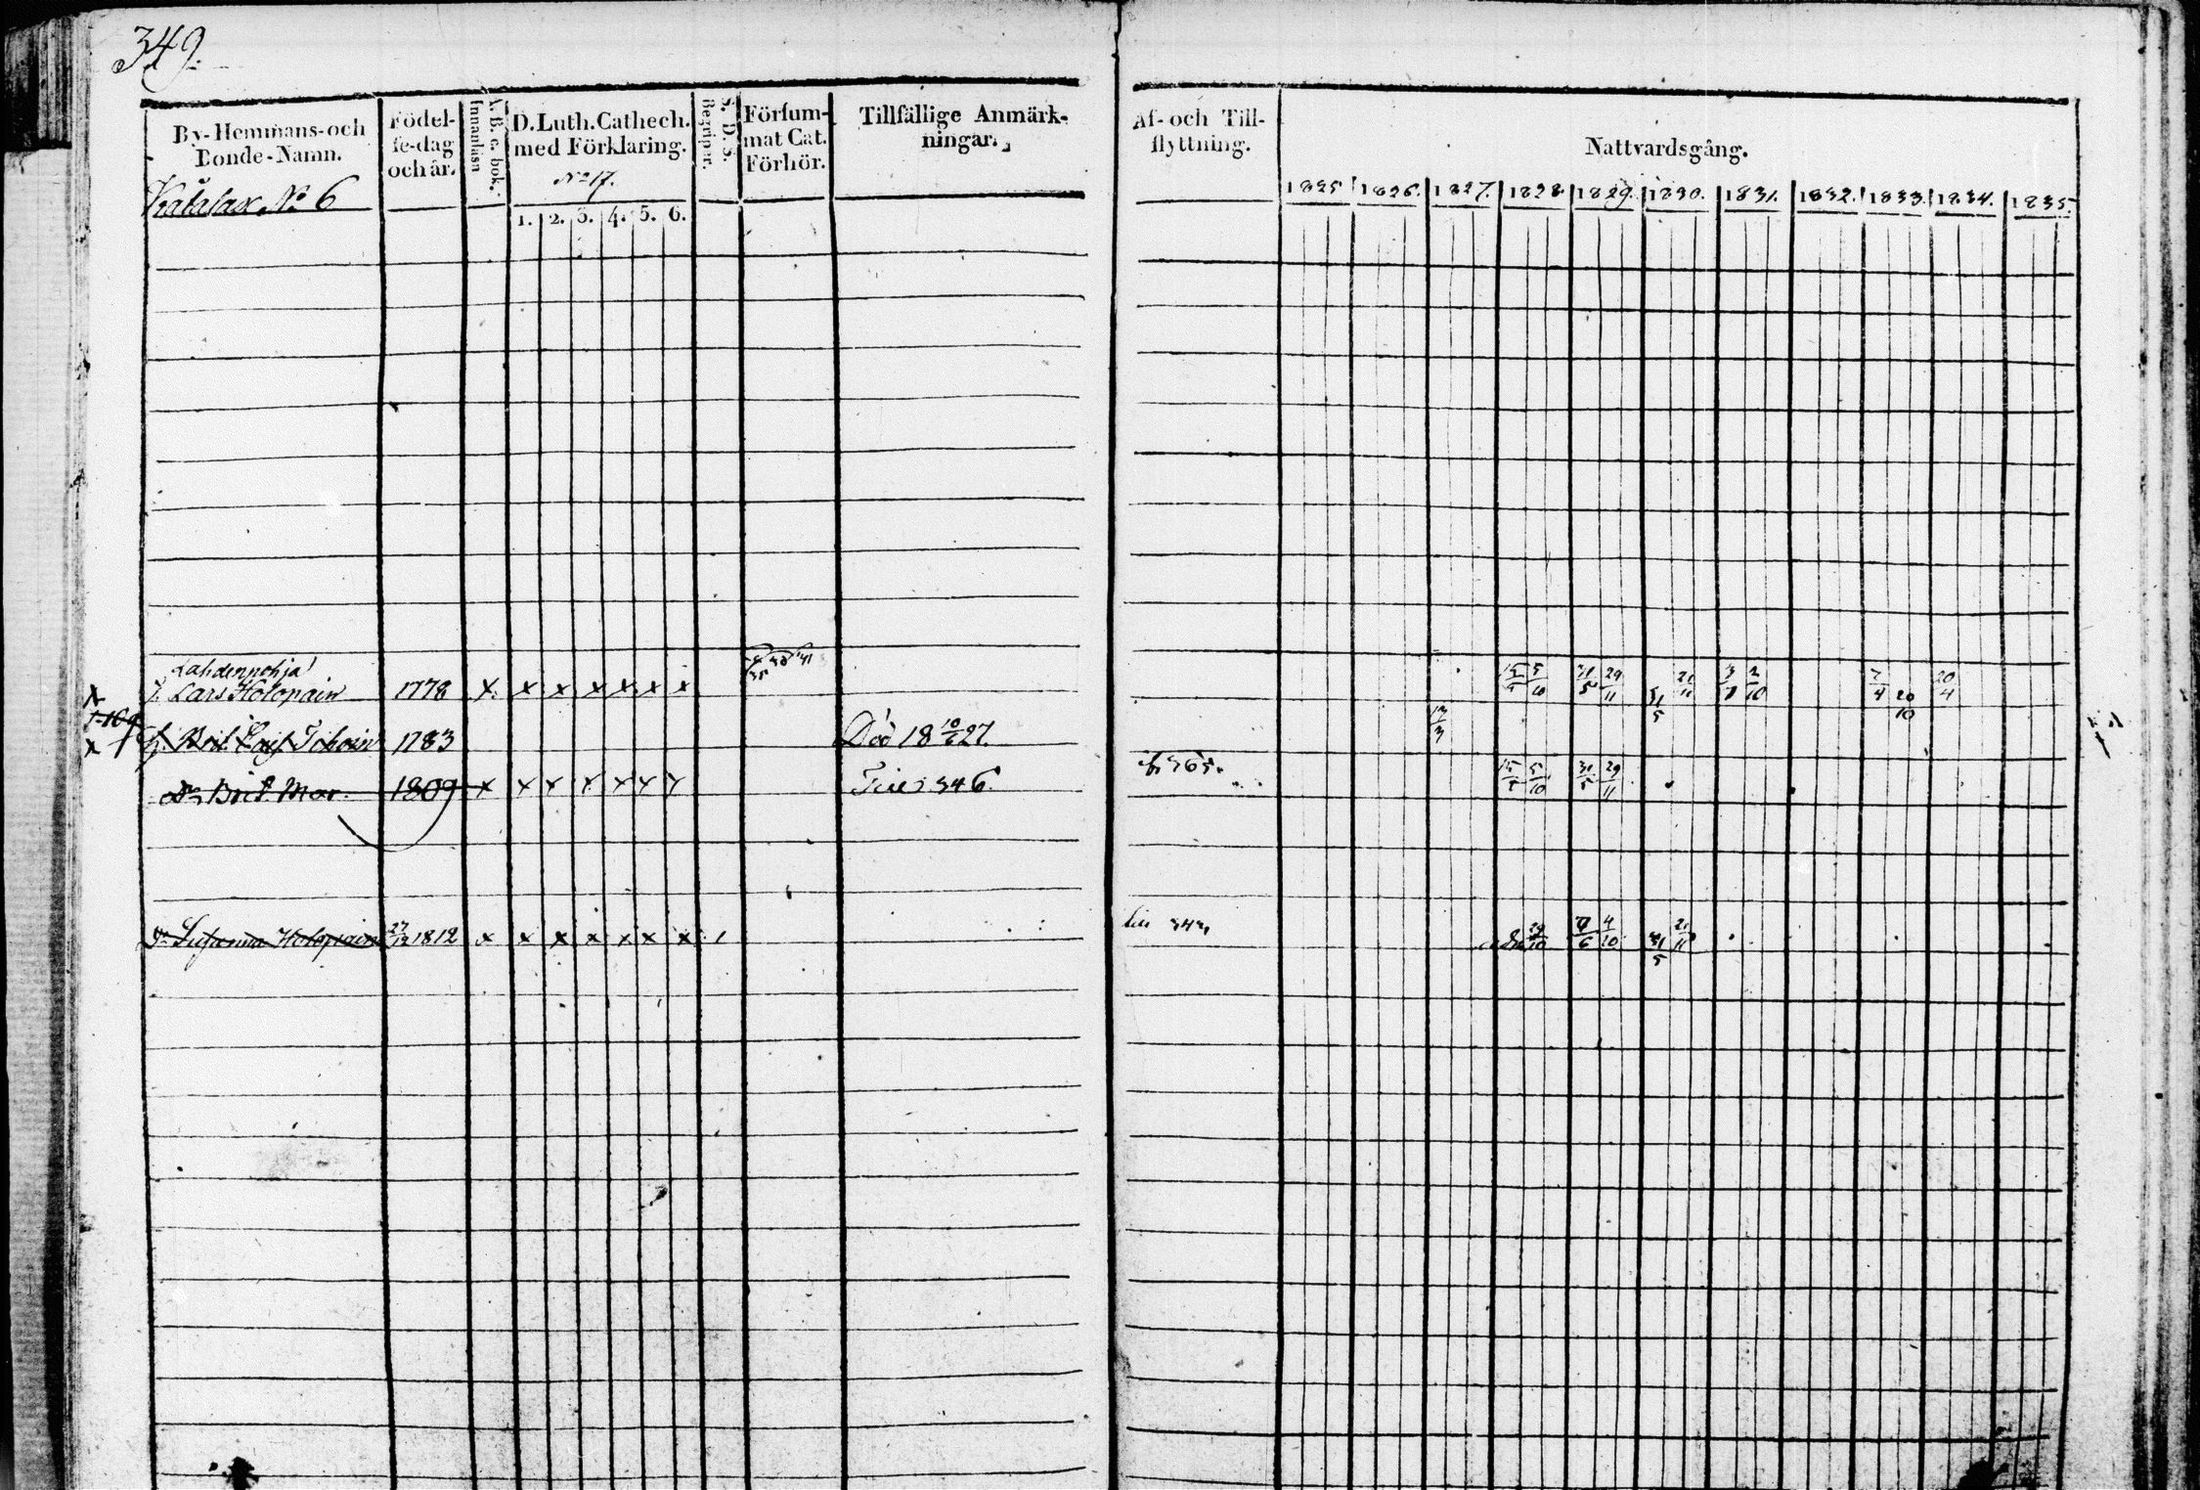 349.
By-Hemmans-och
Bonde-Namn.
Födel-
se-dag
och år.
A.B.c. bok.
Innanläsn
D. Luth. Cathech.
med Förklaring.
No 17.
1. 2. 3. 4. 5. 6.
Begriper.
Försum-
mat Cat.
Förhör.
Tillfällige Anmärk-
ningar.
Af- och Till-
flyttning.
Nattvardsgång.
1825 1826. 1827. 1828 1829. 1830. 1831. 1832. 1833. 1834. 1835.
No 6
Lahdenpohja
Lars Holopain 1778 x x x x x x x 15/5 5/10 31/5 29/11 31/5 21/11 2/10 7/4 20/10 20/4
Brit 1783 Död 18 10/6 27. 12/3
Dr Brit. Mar. 1809 x x x x x x x 346. 365. 15/5 5/10 31/5 29/11
Dr Susanna Holopain 27/12 1812 x x x x x x x 343, 29/10 9/6 4/10 31/5 21/11